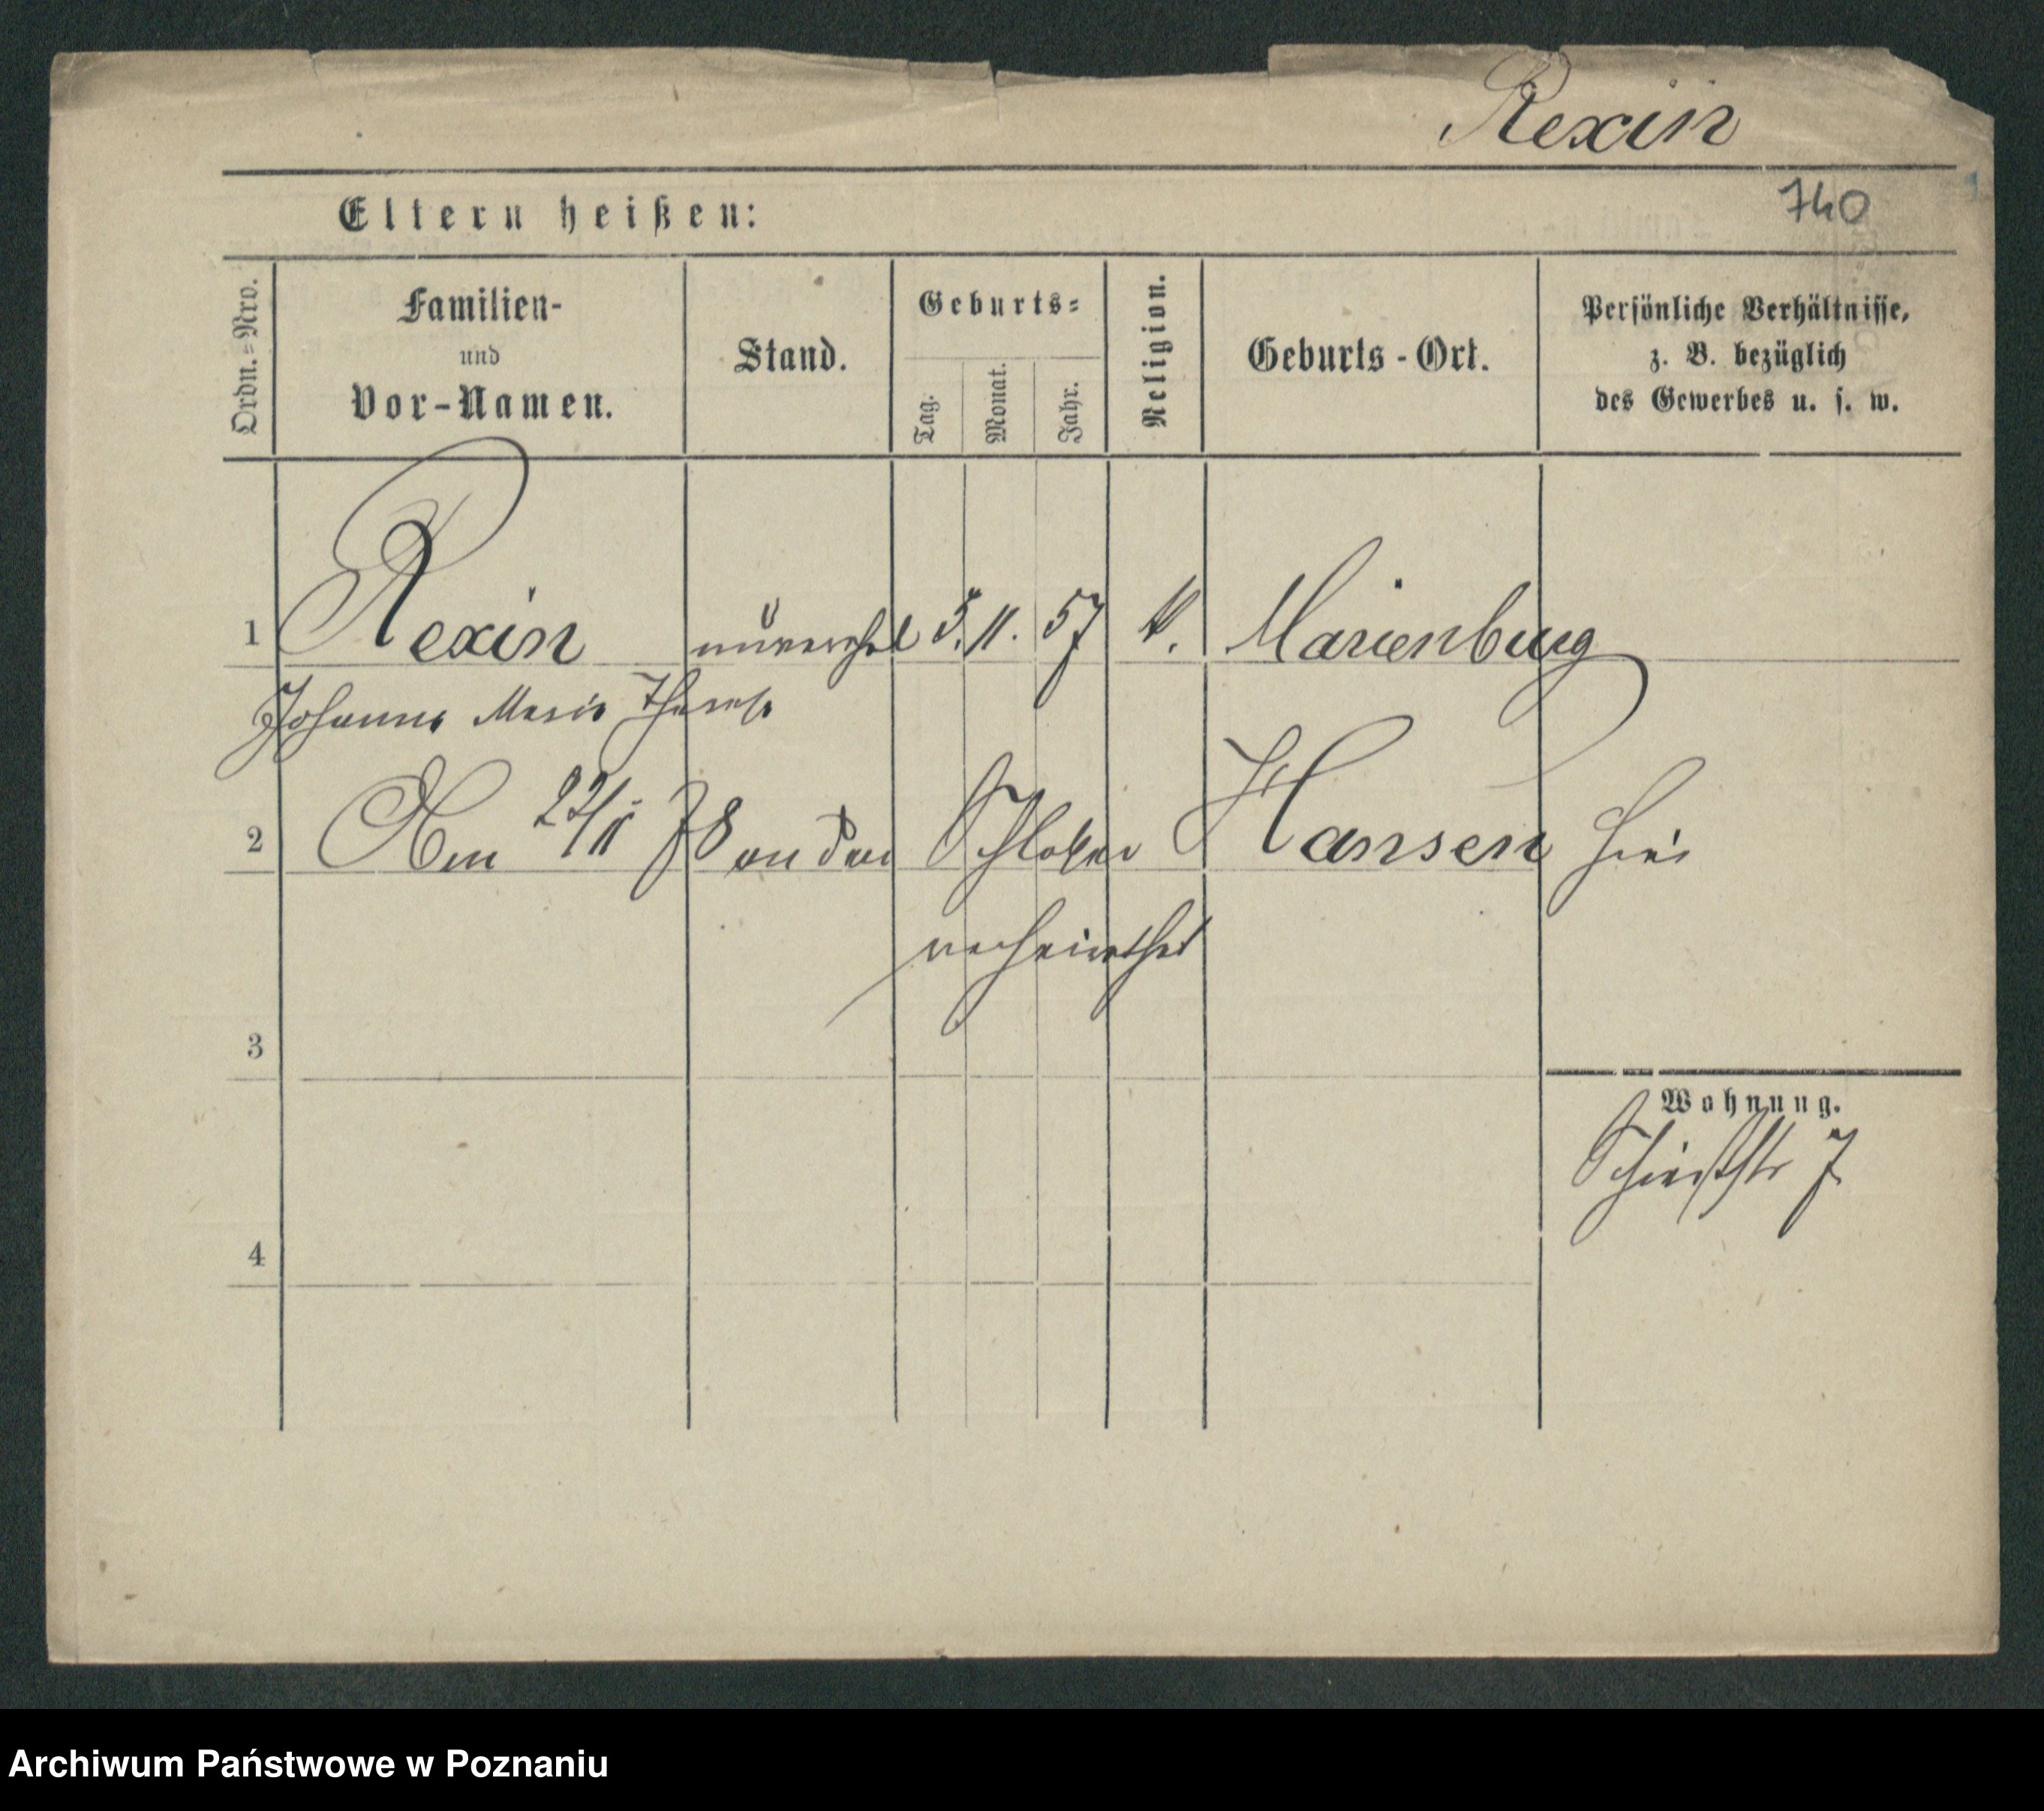 Rexin
740
Eltern heißen:
Ordn.-Nro.
Familien-
und
Vor-Namen.
Stand.
Geburts-
Tag.
Monat.
Jahr.
Religion.
Geburts-Ort.
Persönliche Verhältnisse,
z. B. bezüglich
des Gewerbes u. s. w.
1 Rexin 5. 11. 57 k. Marienburg
Johanna Maria Therese
2 Am 22/11 78 an den Schlosser Hansen hier
verheirathet
3
Wohnung.
7
4
Archiwum Państwowe w Poznaniu